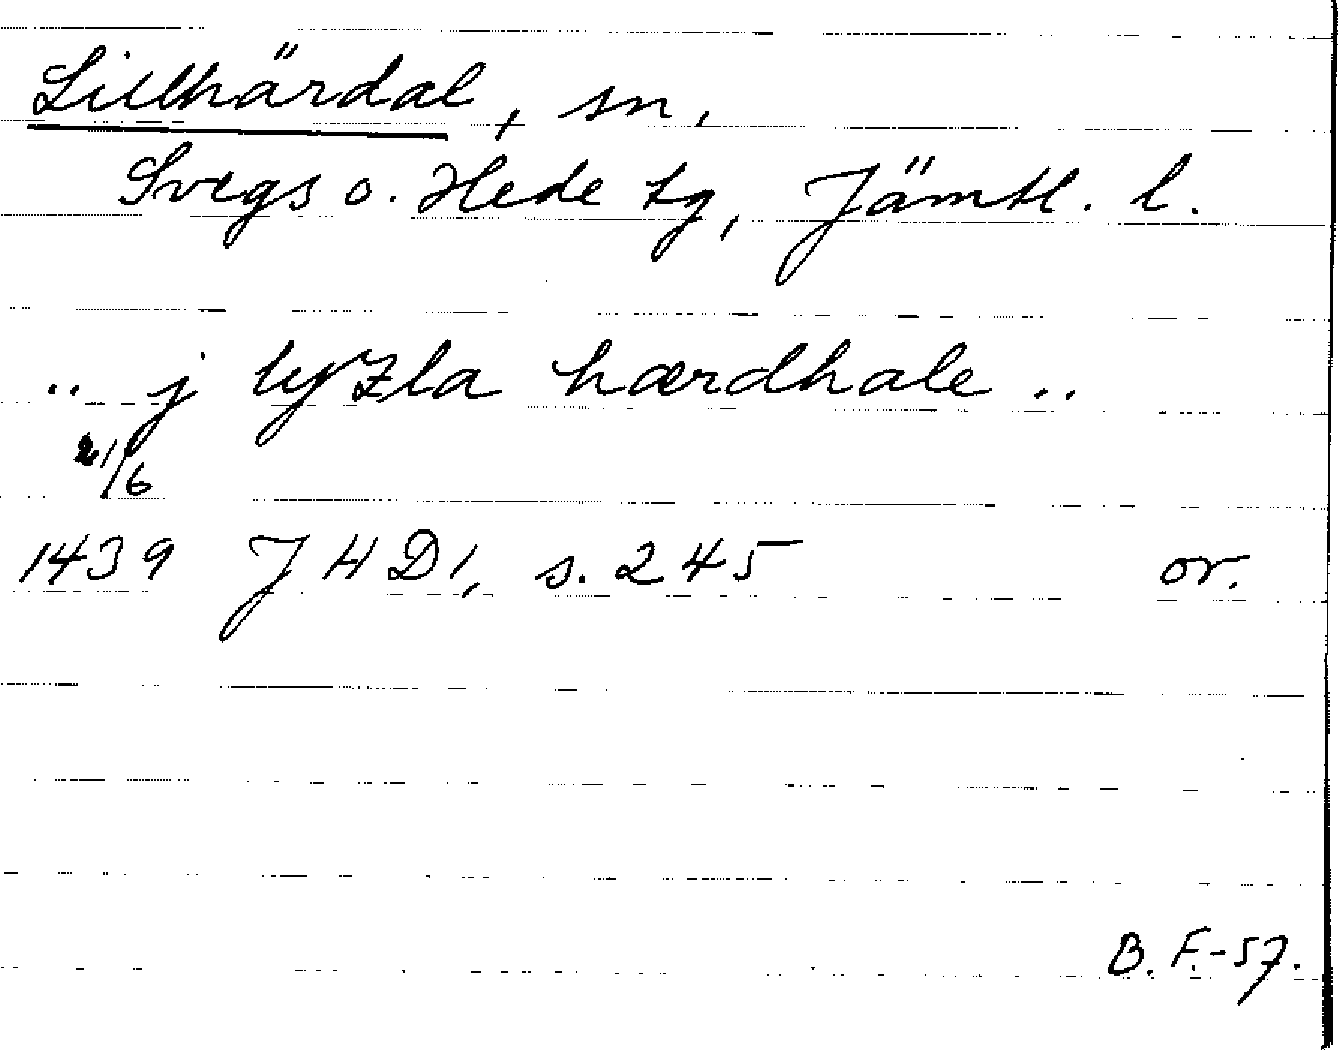 Lillhärdal, sn,
Svegs o. Hede tg, Jämtl. l.
.. j lyzla hærdhale ..
21/6
1439 JHD1, s. 245 or.
B. F.-57.